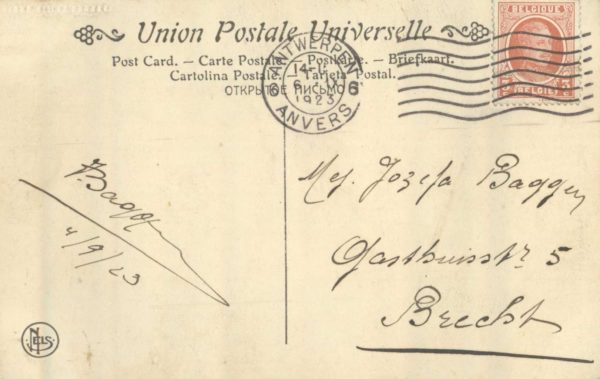 Union Postale Universelle
Post Card. — Carte Postale. — Postkarte. — Briefkaart.
Cartolina Postale. — Tarjeta Postal.
ОТКРЫТОЕ ПИСЬМО
ANTWERPEN
6 6
1923
ANVERS
BELGIQUE
BELGIË
Mej. Jozefa Baggen
Gasthuisstr. 5
Brecht
J. Baggen
4/9/23
NELS